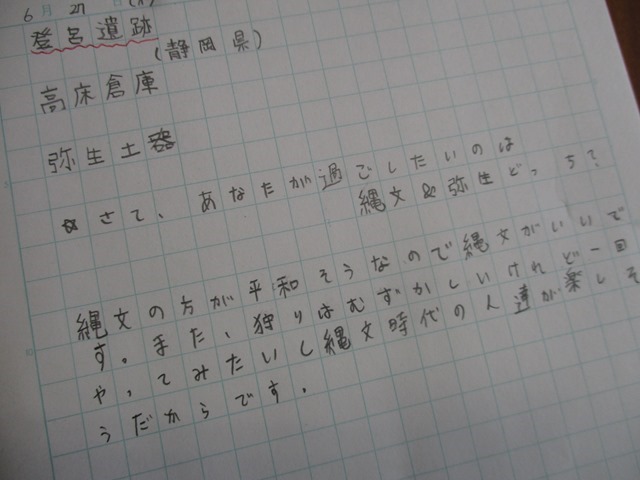 6月27日(火)
登呂遺跡
(静岡県)
高床倉庫
弥生土器
☆さて、あなたが過ごしたいのは
縄文&弥生どっち?
縄文の方が平和そうなので縄文がいいで
す。また、狩りはむずかしいけれど一回
やってみたいし縄文時代の人達が楽しそ
うだからです。